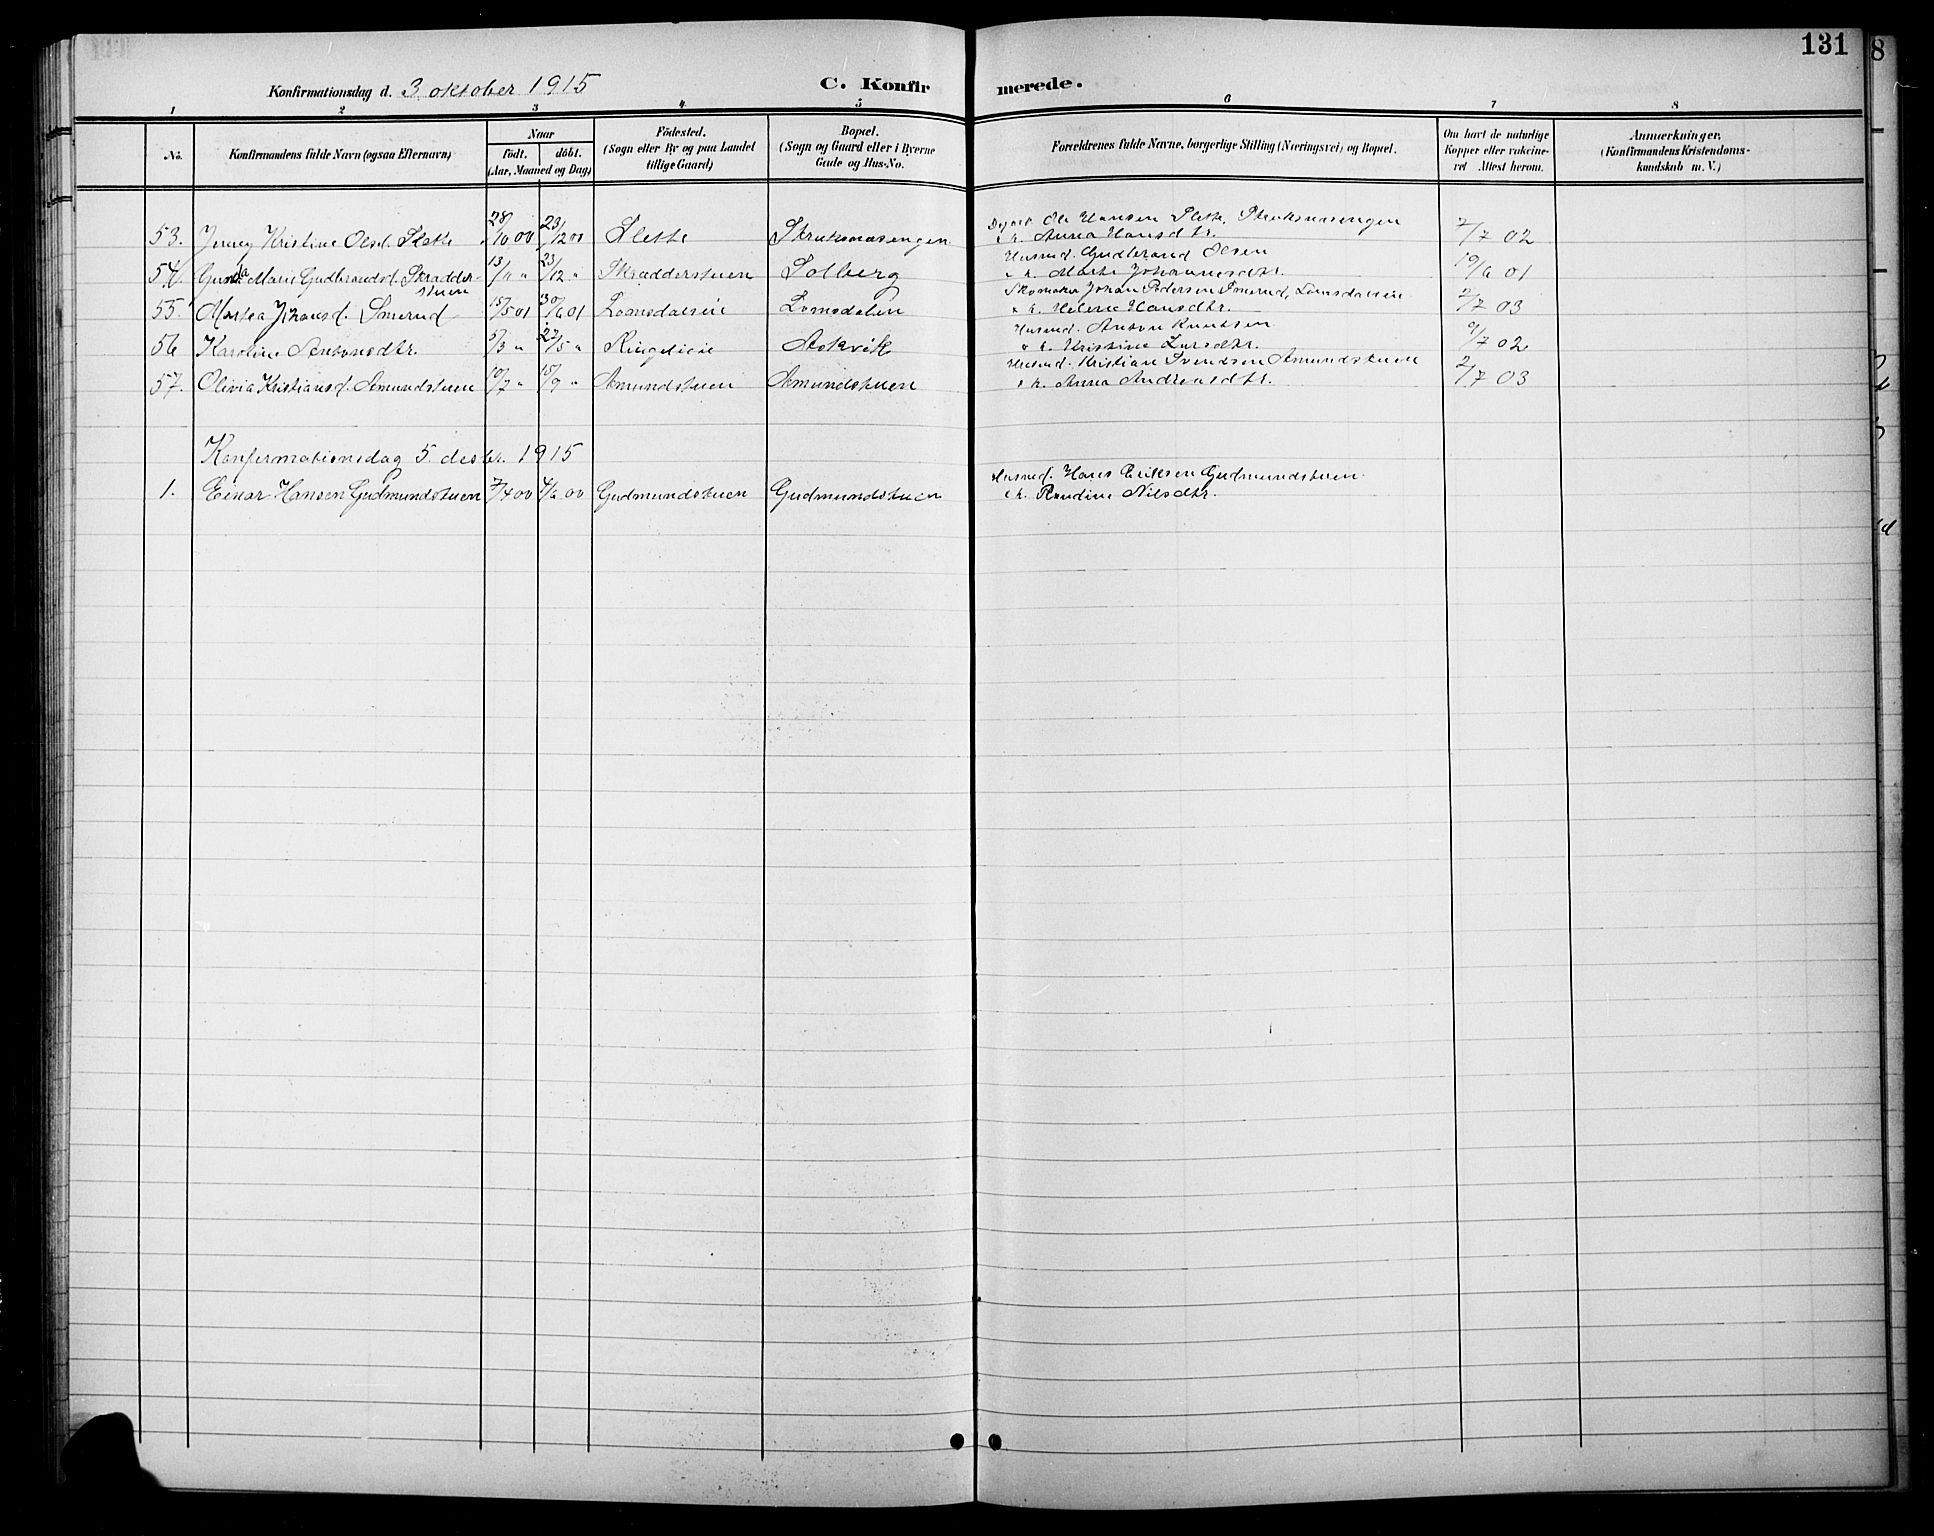 131
Konfirmationsdag d. 3 oktober 1915
C. Konfirmerede.
1 2 3 4 5 6 7 8
No.
Konfirmandens fulde Navn (ogsaa Efternavn)
Naar
födt. döbt.
(Aar, Maaned og Dag)
Födested.
(Sogn eller By og paa Landet
tillige Gaard)
Bopæl.
(Sogn og Gaard eller i Byerne
Gade og Hus-No.
Forældrenes fulde Navne, borgerlige Stilling (Næringsvei) og Bopæl.
Om havt de naturlige
Kopper eller vakcine-
ret Attest herom.
Anmærkninger.
(Konfirmandens Kristendoms-
kundskab m. V.)
53. Jenny Kristine Olsd. Slette 28/10 00 23/12 00 Slette Skruksnæsengen Ole Hansen Slette, Skruksnæsengen
Anna Hansdtr. 2/7 02
54. Gunda Marie Gudbrandsd. Skrædder-
stuen 13/11 " 23/12 " Skrædderstuen Solberg Husmd. Gudbrand Olsen
Marte Johannesdtr. 19/6 01
55. Martea Johansd. Smerud 15/5 01 30/6 01 Lomsdalseie Lomsdalen Skomaker Johan Pedersen Smerud, Lomsdalseie
Helene Hansdtr. 2/7 03
56 Karoline Antonsdtr. 5/3 " 27/5 " Ringelieie Askvik Husmd. Anton Knutsen
Kristine Larsdtr. 9/7 02
57. Olivia Kristiansd. Amundstuen 10/7 " 15/9 " Amundstuen Amundstuen Husmd. Kristian Svendsen Amundstuen
Anna Andreasdtr. 2/7 03
Konfirmationsdag 5. desbr. 1915
1. Einar Hansen Gudmundstuen 7/4 00 4/6 00 Gudmundstuen Gudmundstuen Husmd. Hans Eriksen Gudmundstuen
Randine Nilsdtr.